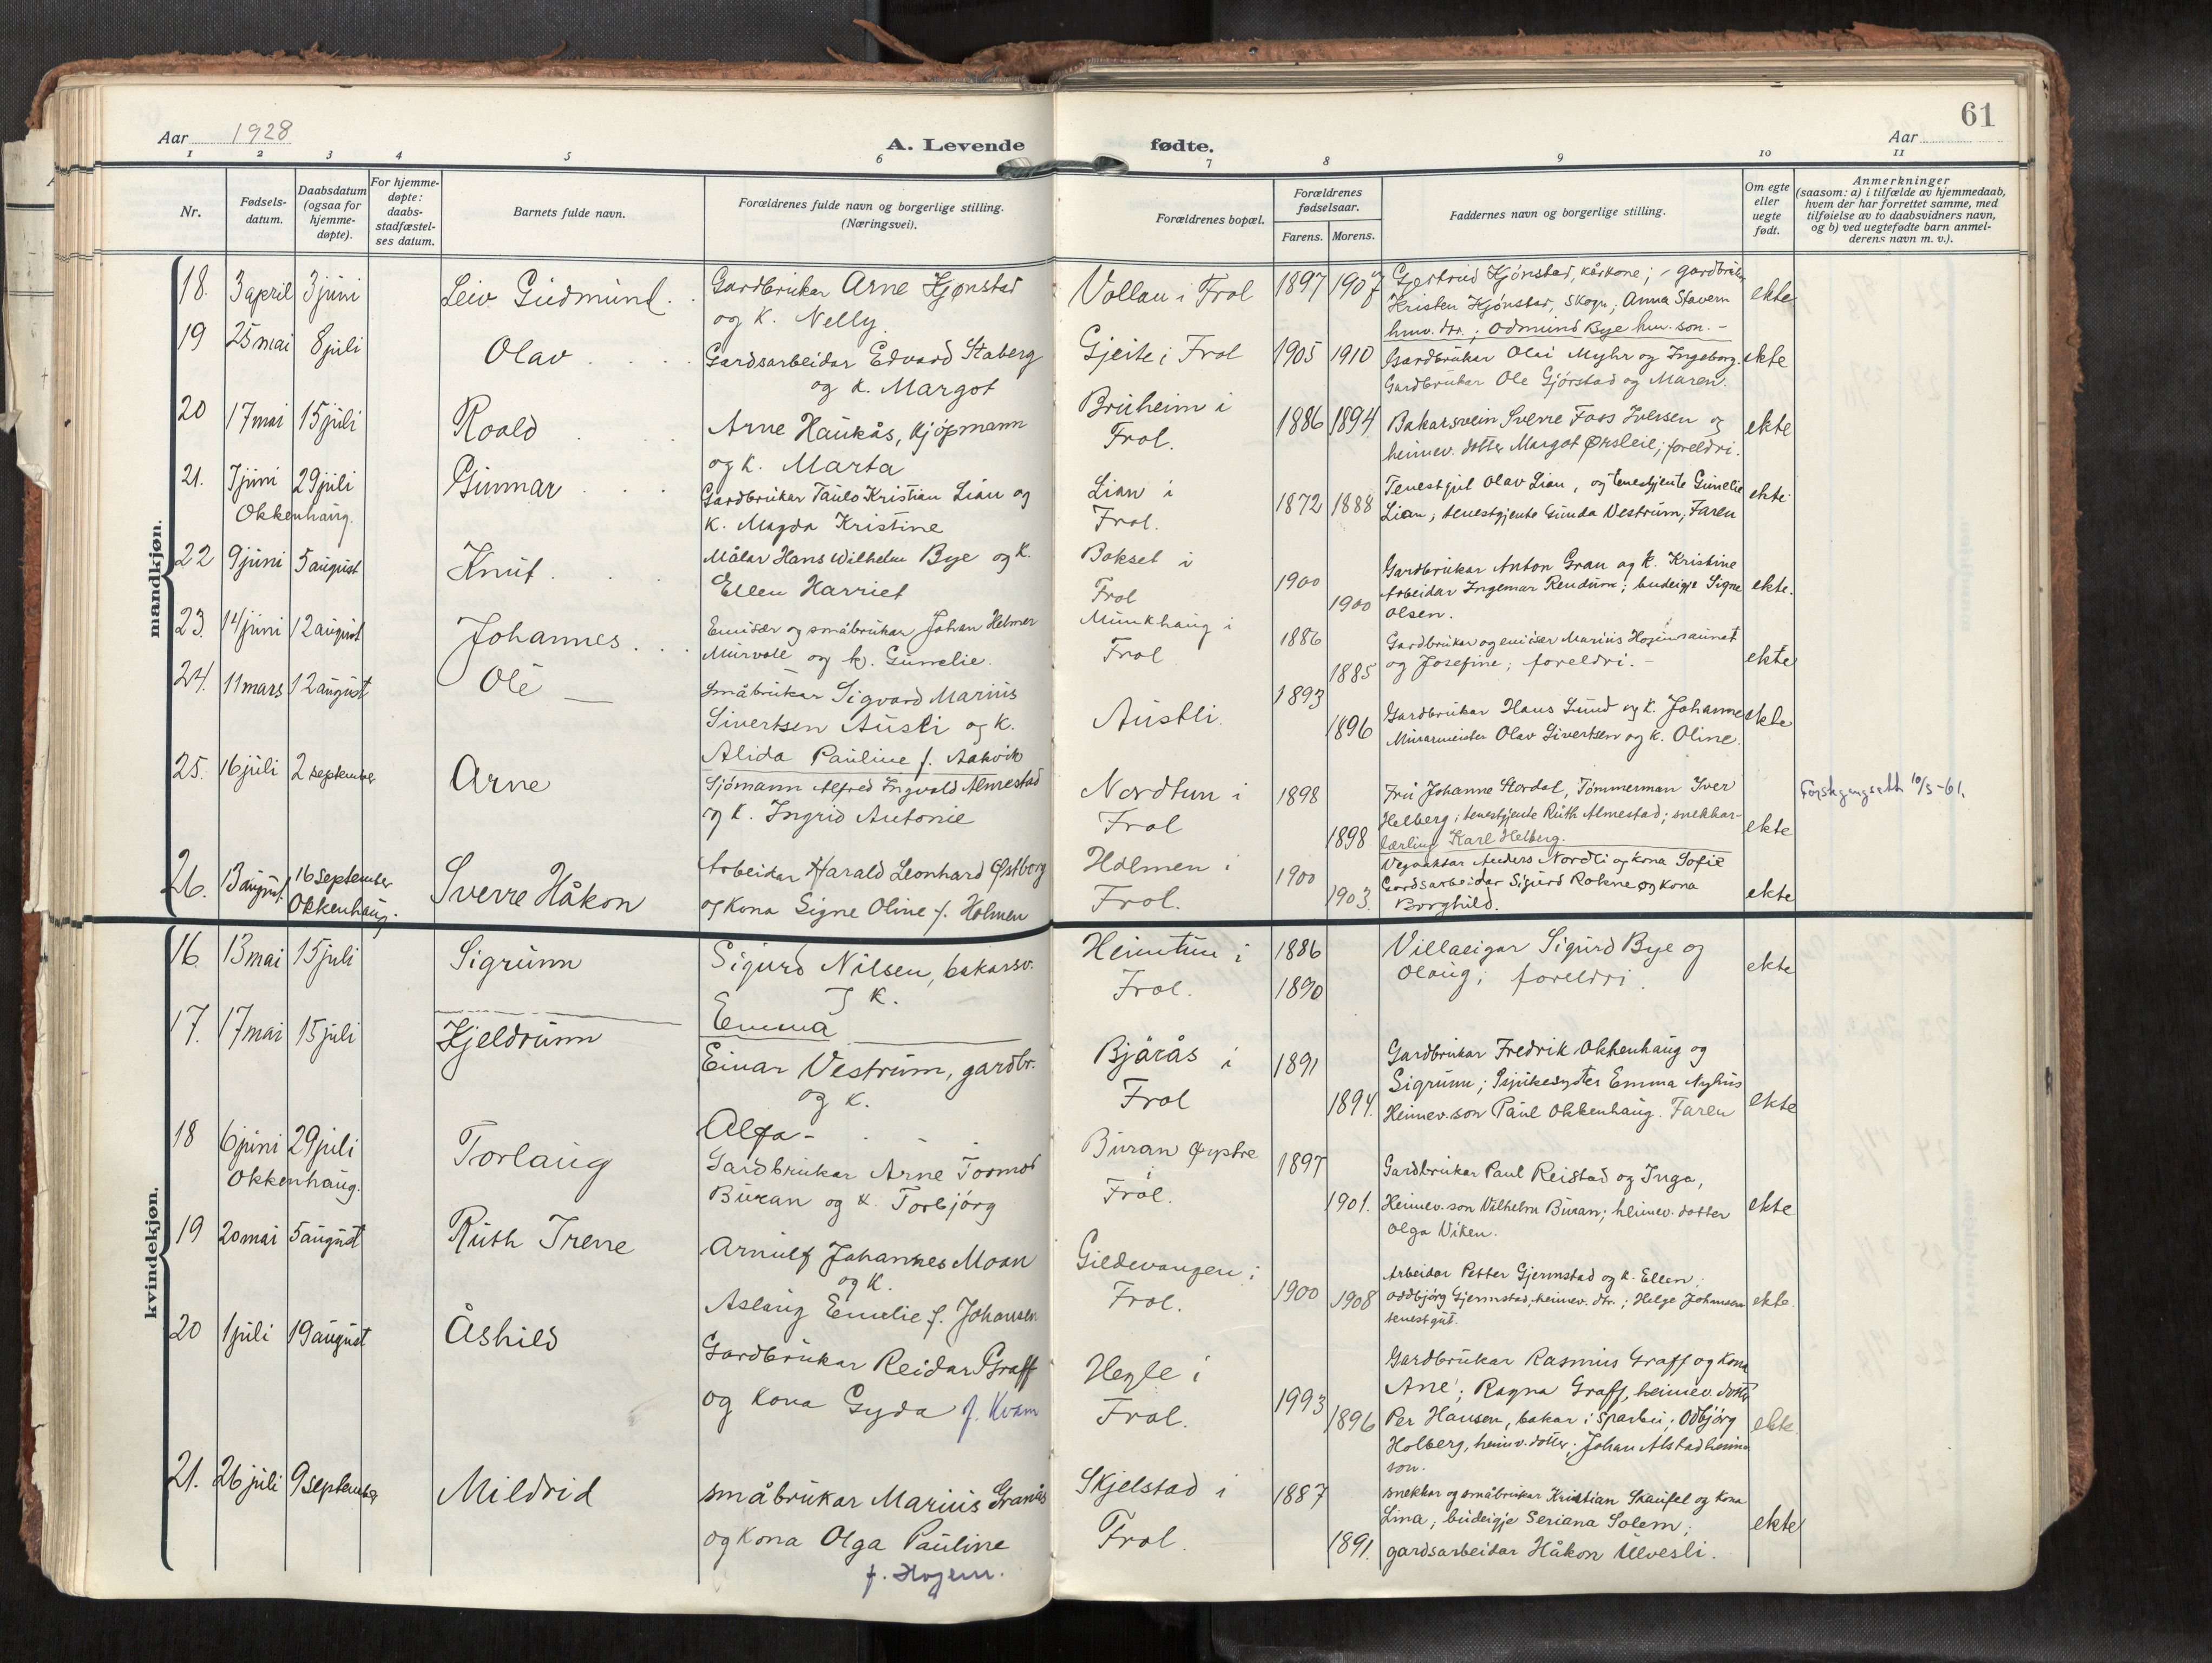 61
Aar 1928
A. Levende
fødte.
Aar
1 2 3 4 5 6 7 8 9 10 11
Nr.
Fødsels-
datum.
Daabsdatum
(ogsaa for
hjemme-
døpte).
For hjemme-
døpte:
daabs-
stadfæstel-
ses datum.
Barnets fulde navn.
Forældrenes fulde navn og borgerlige stilling.
(Næringsvei).
Forældrenes bopæl.
Forældrenes
fødselsaar.
Farens. Morens.
Faddernes navn og borgerlige stilling.
Om egte
eller
uegte
født.
Anmerkninger
(saasom: a) i tilfælde av hjemmedaab,
hvem der har forrettet samme, med
tilføielse av to daabsvidners navn,
og b) ved uegtefødte barn anmel-
derens navn m. v.).
mandkjøn.
18. 3 april 3 juni Leiv Gudmund.
Gardbrukar Arne Hjønstad
og k. Nelly.
Vollan i Frol 1897 1907
Gjertrud Hjønstad, kårkone; gardbrukar
Kristen Hjønstad, Skogn; Anna Stavern
hmv. dtr.; Odmund Bye hmv. son. -
ekte
19 25 mai 8 juli Olav
Gardsarbeidar Edvard Staberg
og k. Margot
Gjeite i Frol 1905 1910
Gardbrukar Olai Myhr og Ingeborg.
Gardbrukar Ole Gjørstad og Maren.
ekte
20 17 mai 15 juli Roald
Arne Haukås, kjøpmann
og k. Marta
Bruheim i
Frol.
1886 1894
Bakarsvein Sverre Foss Iversen og
heimev. dotter Margot Ørsleie; foreldri.
ekte
21. 7 juni 29 juli
Okkenhaug.
Gunnar
Gardbrukar Paulo Kristian Lian og
k. Magda Kristine
Lian i
Frol.
1872 1888
Tenestgut Olav Lian, og tenestjente Gunelie
Lian; tenestgjente Gunda Vestrum; Faren
ekte
22 9 juni 5 august Knut.
Målar Hans Wilhelm Bye og k.
Ellen Harriet
Bakset i
Frol
1900
1900
Gardbrukar Anton Grau og k. Kristine
Arbeidar Ingemar Rendum; budeigje Signe
Olsen.
ekte.
23. 14 juni 12 august Johannes.
Emisær og småbrukar Johan Helmer
Murvoll og k. Gunelie.
Munkhaug i
Frol
1886
1885
Gardbrukar og emisær Marius
og Josefine; foreldri. -
ekte
24. 11 mars 12 august Ole
Småbrukar Sigvard Marius
Sivertsen Austli og k.
Alida Pauline f. Aakvik
Austli.
1893
1896
Gardbrukar Hans Lund og k. Johanne
Murarmeister Olav Sivertsen og k. Oline.
ekte
25. 16 juli 2 september Arne
Sjømann Alfred Ingvald Almestad
og k. Ingrid Antonie
Nordtun i
Frol
1898
1898
Fru Johanne Stordal, Tømmerman Iver
Helberg; tenestjente Ruth Almestad; snekkar-
lærling Karl Helberg.
ekte
10/5-61.
26. 13 august 16 september
Okkenhaug.
Sverre Håkon
Arbeidar Harald Leonhard Østborg
og kona Signe Oline f. Holmen
Holmen i
Frol.
1900
1903.
Vegvaktar Anders Nordli og kona Sofie
Gardsarbeidar Sigurd Rokne og kona
Borghild.
ekte
kvindekjøn.
16. 13 mai 15 juli Sigrunn
Sigurd Nilsen, bakarsv.
og k.
Emma
Heimtun i
Frol.
1886
1890
Villaeigar Sigurd Bye og
Olaug; foreldri.
ekte
17. 17 mai 15 juli Kjeldrunn
Einar Vestrum, gardbr.
og k.
Alfa -
Bjårås i
Frol
1891
1894.
Gardbrukar Fredrik Okkenhaug og
Sigrunn; sjukesyster Emma Nyhus
Heimev. son Paul Okkenhaug. Faren
ekte
18 6 juni 29 juli
Okkenhaug.
Torlaug
Gardbrukar Arne Tormod
Buran og k. Torbjørg
Buran Øystre
i
Frol.
1897
1901.
Gardbrukar Paul Reistad og Inga,
Heimev. son Vilhelm Buran; heimev. dotter
Olga Viken.
ekte
19 20 mai 5 august Ruth Irene
Arnulf Johannes Moan
og k.
Aslaug Emelie f. Johansen
Gildevangen i
Frol.
1900 1908
Arbeidar Petter Gjermstad og k. Ellen;
Oddbjørg Gjermstad, heimev. dtr.; Helge Johansen
tenestgut.
ekte.
20 1 juli 19 august Åshild
Gardbrukar Reidar Graff
og kona Gyda f. Kvam
Hegle i
Frol.
1993
1896
Gardbrukar Rasmus Graff og kona
Ane; Ragna Graff, heimev. dotter
Per Hansen, bakar i Sparbu; Odbjørg
Holberg, heimv. dotter; Johan Alstad heimv
son.
ekte.
21. 26 juli 9 september Mildrid
småbrukar Marius Granås
og kona Olga Pauline
f. Hojem.
Skjelstad i
Frol.
1887
1891.
snekkar og småbrukar Kristian Skaufel og kona
Lina; budeigje Seriana Solem;
gardsarbeidar Håkon Ulvesli.
ekte